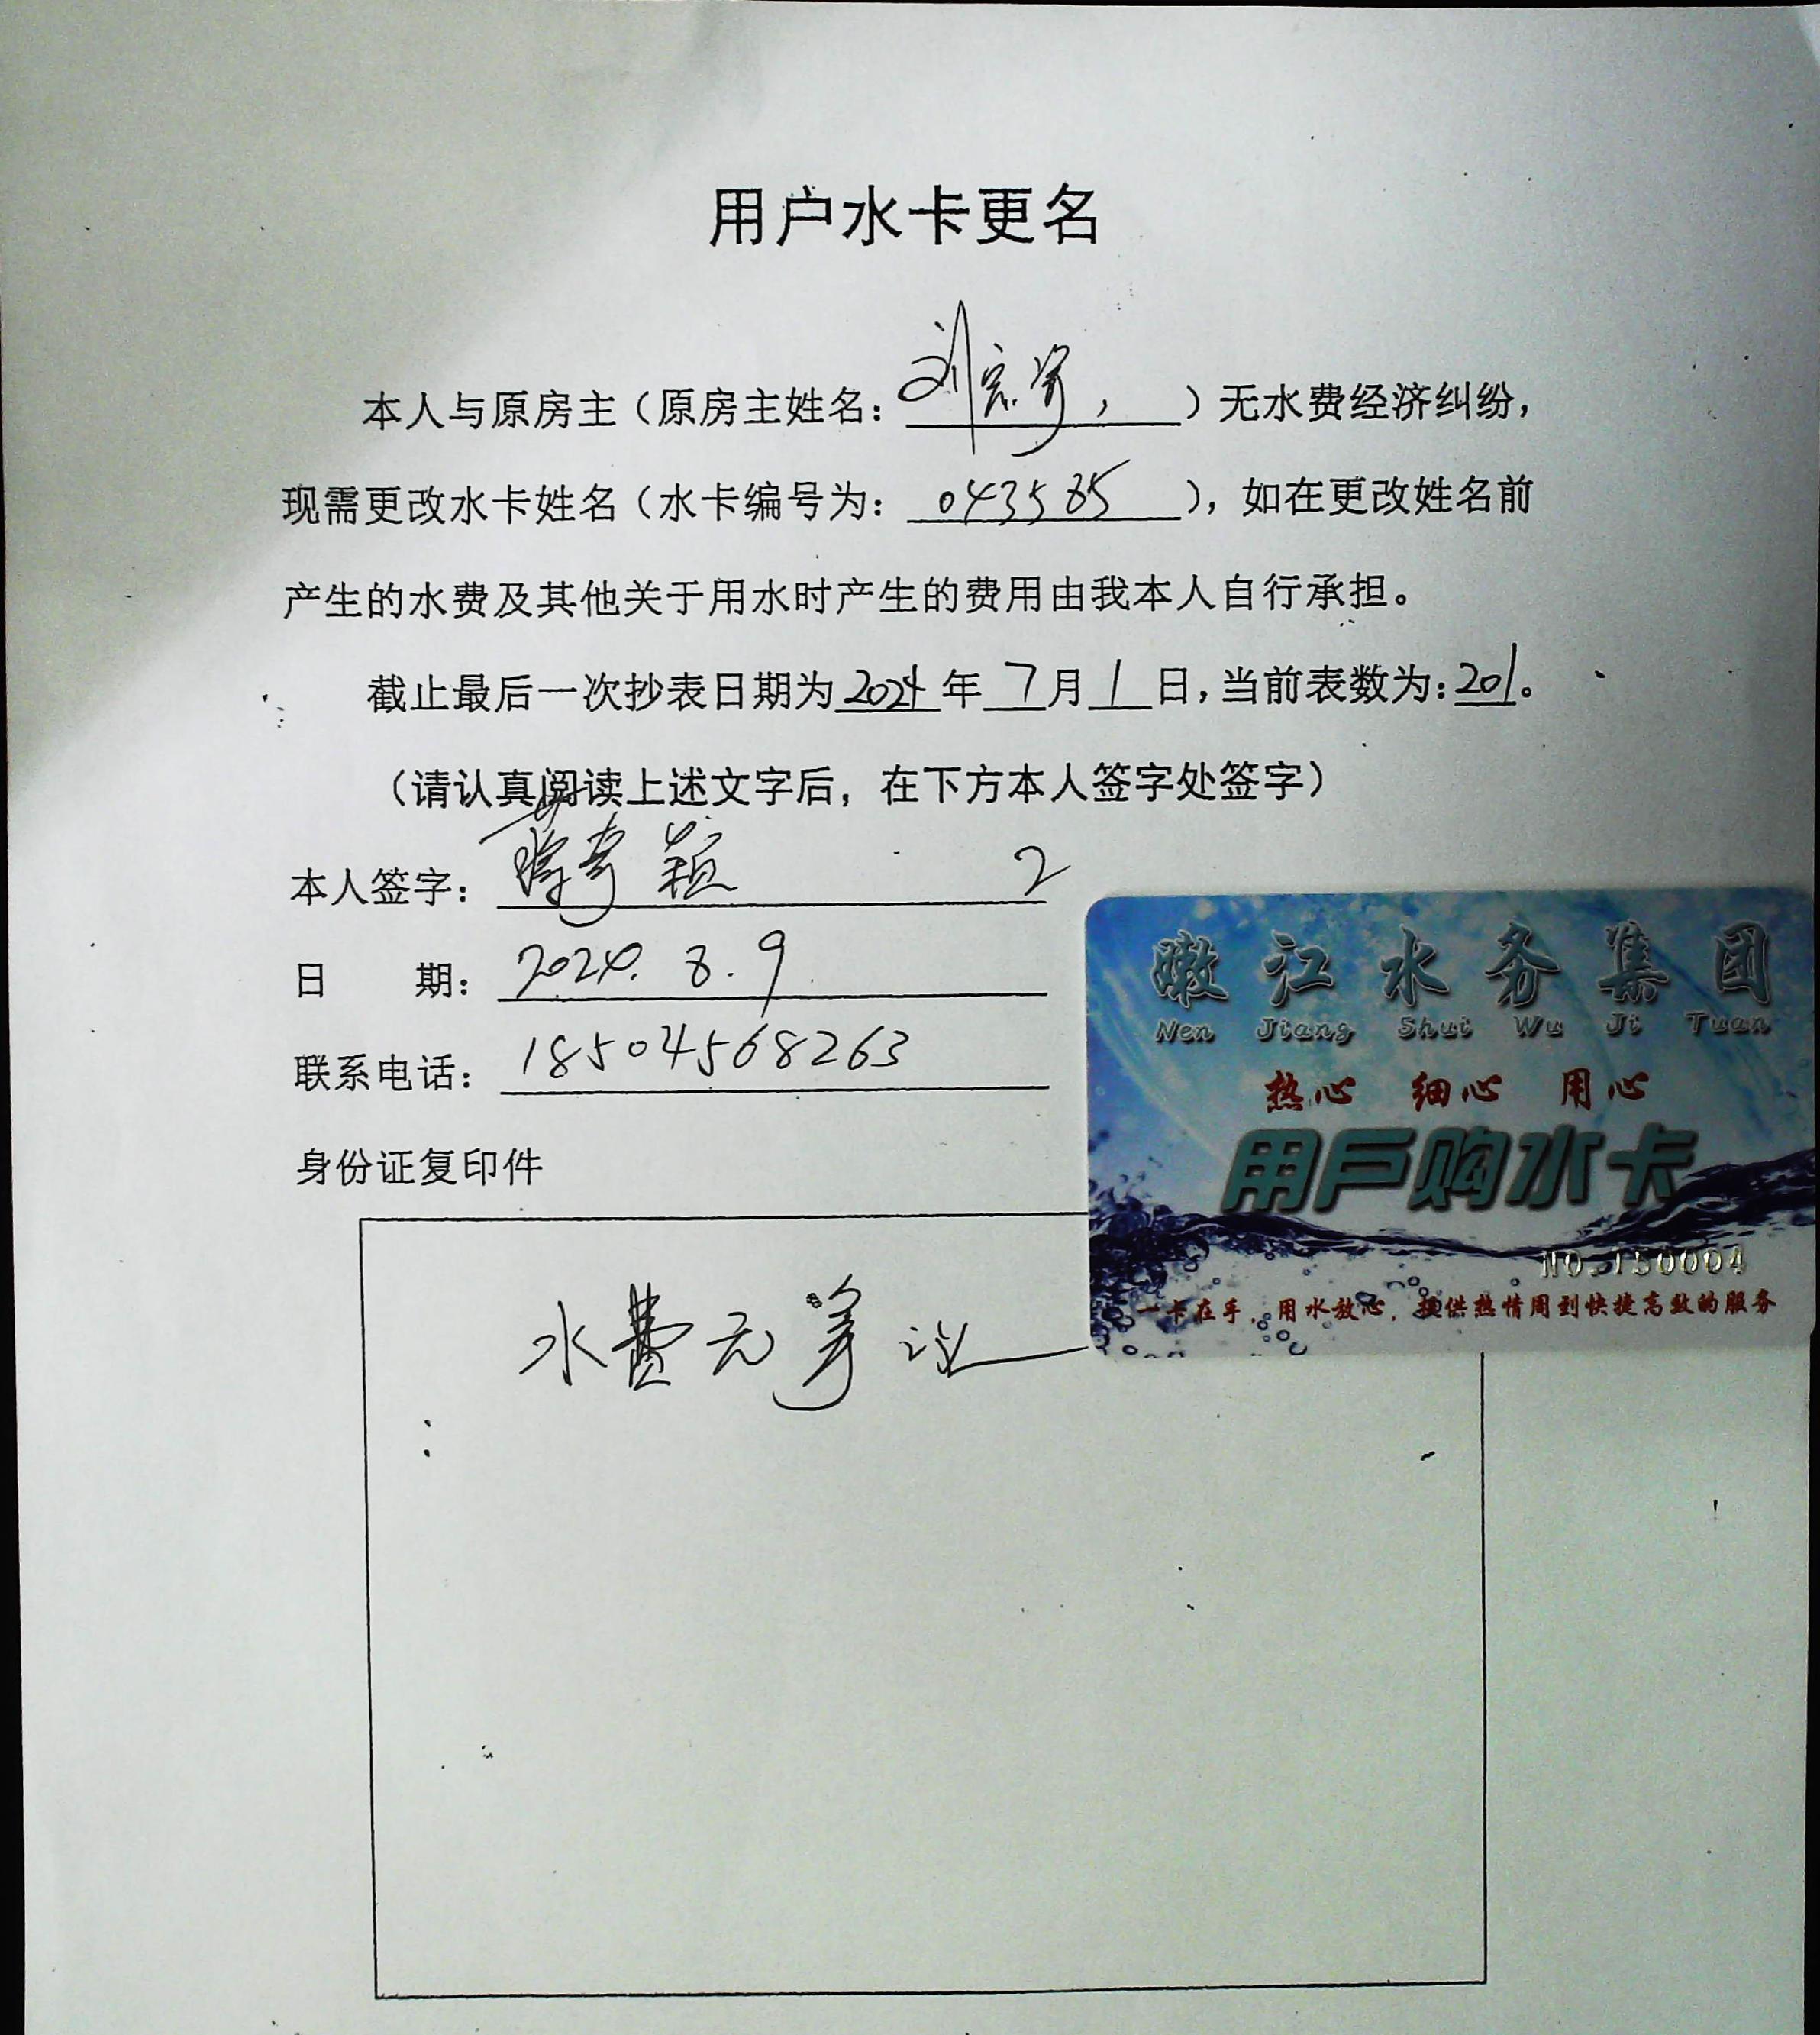 用户水卡更名
本人与原房主（原房主姓名：刘宏宇，）无水费经济纠纷，
现需更改水卡姓名（水卡编号为：043585），如在更改姓名前
产生的水费及其他关于用水时产生的费用由我本人自行承担。
截止最后一次抄表日期为2024年7月1日，当前表数为：201。
（请认真阅读上述文字后，在下方本人签字处签字）
本人签字：颖 2
日 期：2024.8.9
联系电话：18504568263
身份证复印件
水费无争议
嫩江水务集团
Nen Jiang Shui Wu Ji Tuan
热心 细心 用心
用户购水卡
NO.150004
一卡在手，用水放心，提供热情周到快捷高效的服务